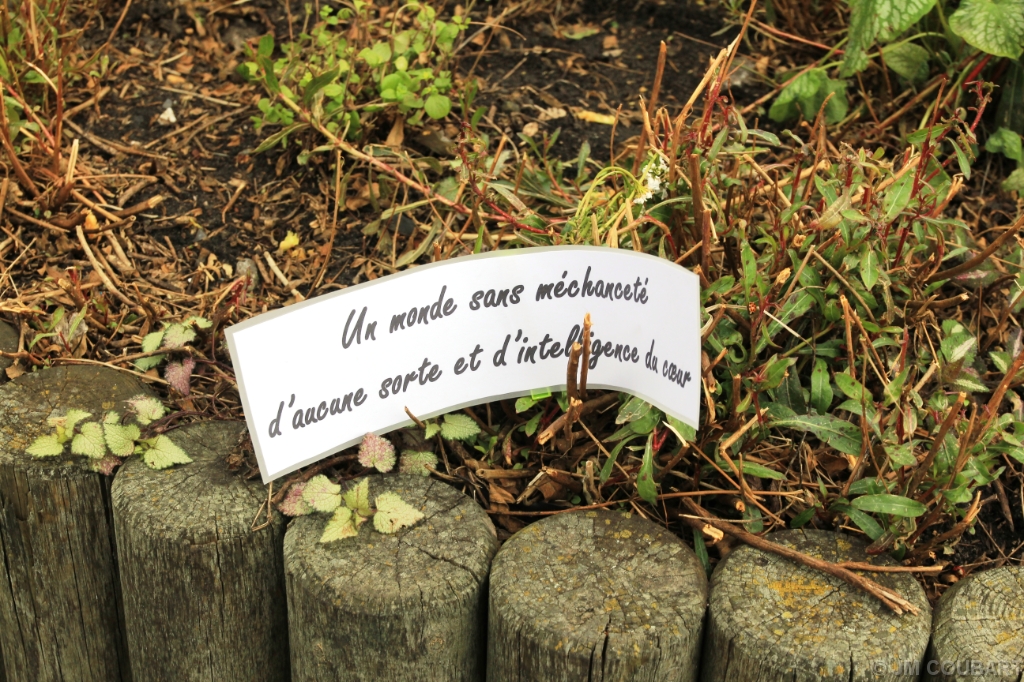 Un monde sans méchanceté
d'aucune sorte et d'intelligence du cœur
JIM COUBART